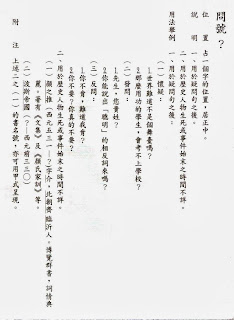 問號 ？
位　置　占一個字的位置，居正中。
說　明　一、用於疑問句之後。
二、用於歷史人物生死或事件始末之時間不詳。
用法舉例　一、用於疑問句之後：
（一）懷疑：
1.世界難道不是個舞臺嗎？
2.那麼用功的學生，會考不上學校？
（二）發問：
1.先生，您貴姓？
2.你能說出「聰明」的相反詞來嗎？
（三）反問：
1.你不肯，難道我肯？
2.你不要？你真的不要？
二、用於歷史人物生死或事件始末之時間不詳。
（一）顏之推（西元五三一－？）字介，北朝齊臨沂人。博覽群書，詞情典
麗。著有《文集》及《顏氏家訓》等。
（二）波斯帝國（？－西元前三三〇）
附　注　上述二之（一）的書名號，亦可用甲式呈現。